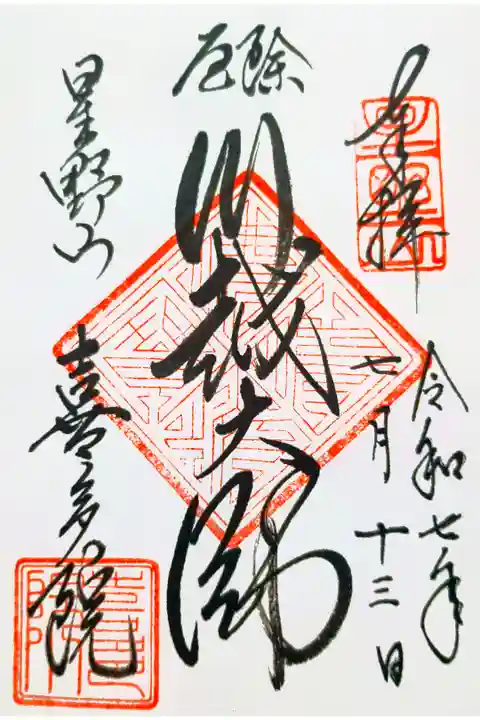 奉拝
令和七年
七月十三日
厄除
川越大師
星野山
喜多院